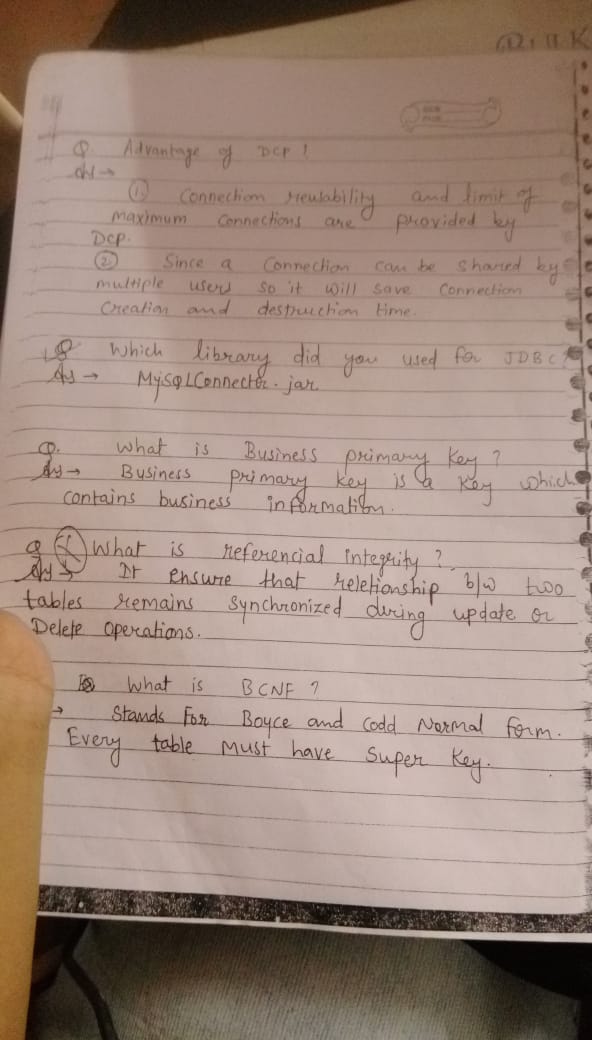 Q. Advantage of DCP ?
Ans →
① Connection reusability and limit of
maximum Connections are provided by
DCP.
② Since a Connection can be shared by
multiple users so it will save Connection
Creation and destruction time.
Q Which library did you used for JDBC?
Ans → MySQLConnector.jar
Q. What is Business primary Key ?
Ans → Business primary key is a key which
contains business information.
Q What is referencial Integrity ?
Ans → It ensure that reletionship b/w two
tables remains synchronized during update or
Delete operations.
What is BCNF ?
→ Stands For Boyce and Codd Normal form.
Every table Must have Super Key.